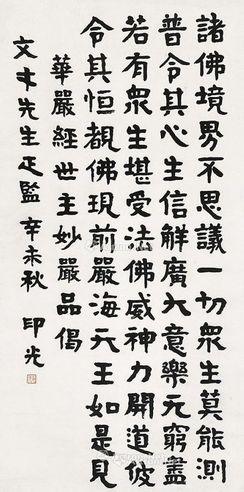 諸佛境界不思議一切衆生莫能測
普令其心生信解廣大意樂无窮盡
若有衆生堪受法佛威神力開道彼
令其恒覩佛現前嚴海天王如是見
華嚴經世主妙嚴品偈
文才先生正監 辛未秋 印光